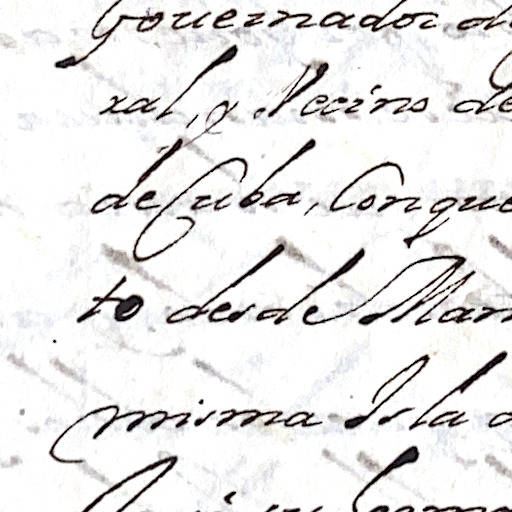 Gouernador d
ral, y Vecino de
de Cuba, Conque
to desde Man
misma Isla d